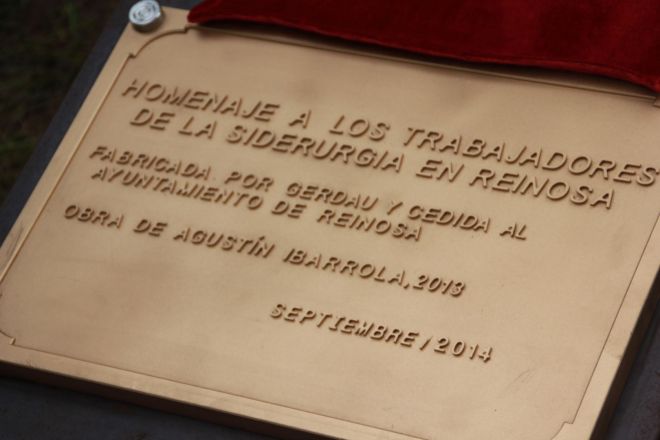 HOMENAJE A LOS TRABAJADORES
DE LA SIDERURGIA EN REINOSA
FABRICADA POR GERDAU Y CEDIDA AL
AYUNTAMIENTO DE REINOSA
OBRA DE AGUSTÍN IBARROLA, 2013
SEPTIEMBRE/2014